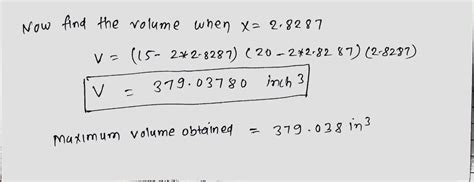 Now find the volume when x= 2.8287
V = (15- 2*2.8287) (20 - 2*2.8287) (2.8287)
V = 379.03780 inch 3
Maximum volume obtained = 379.038 in³